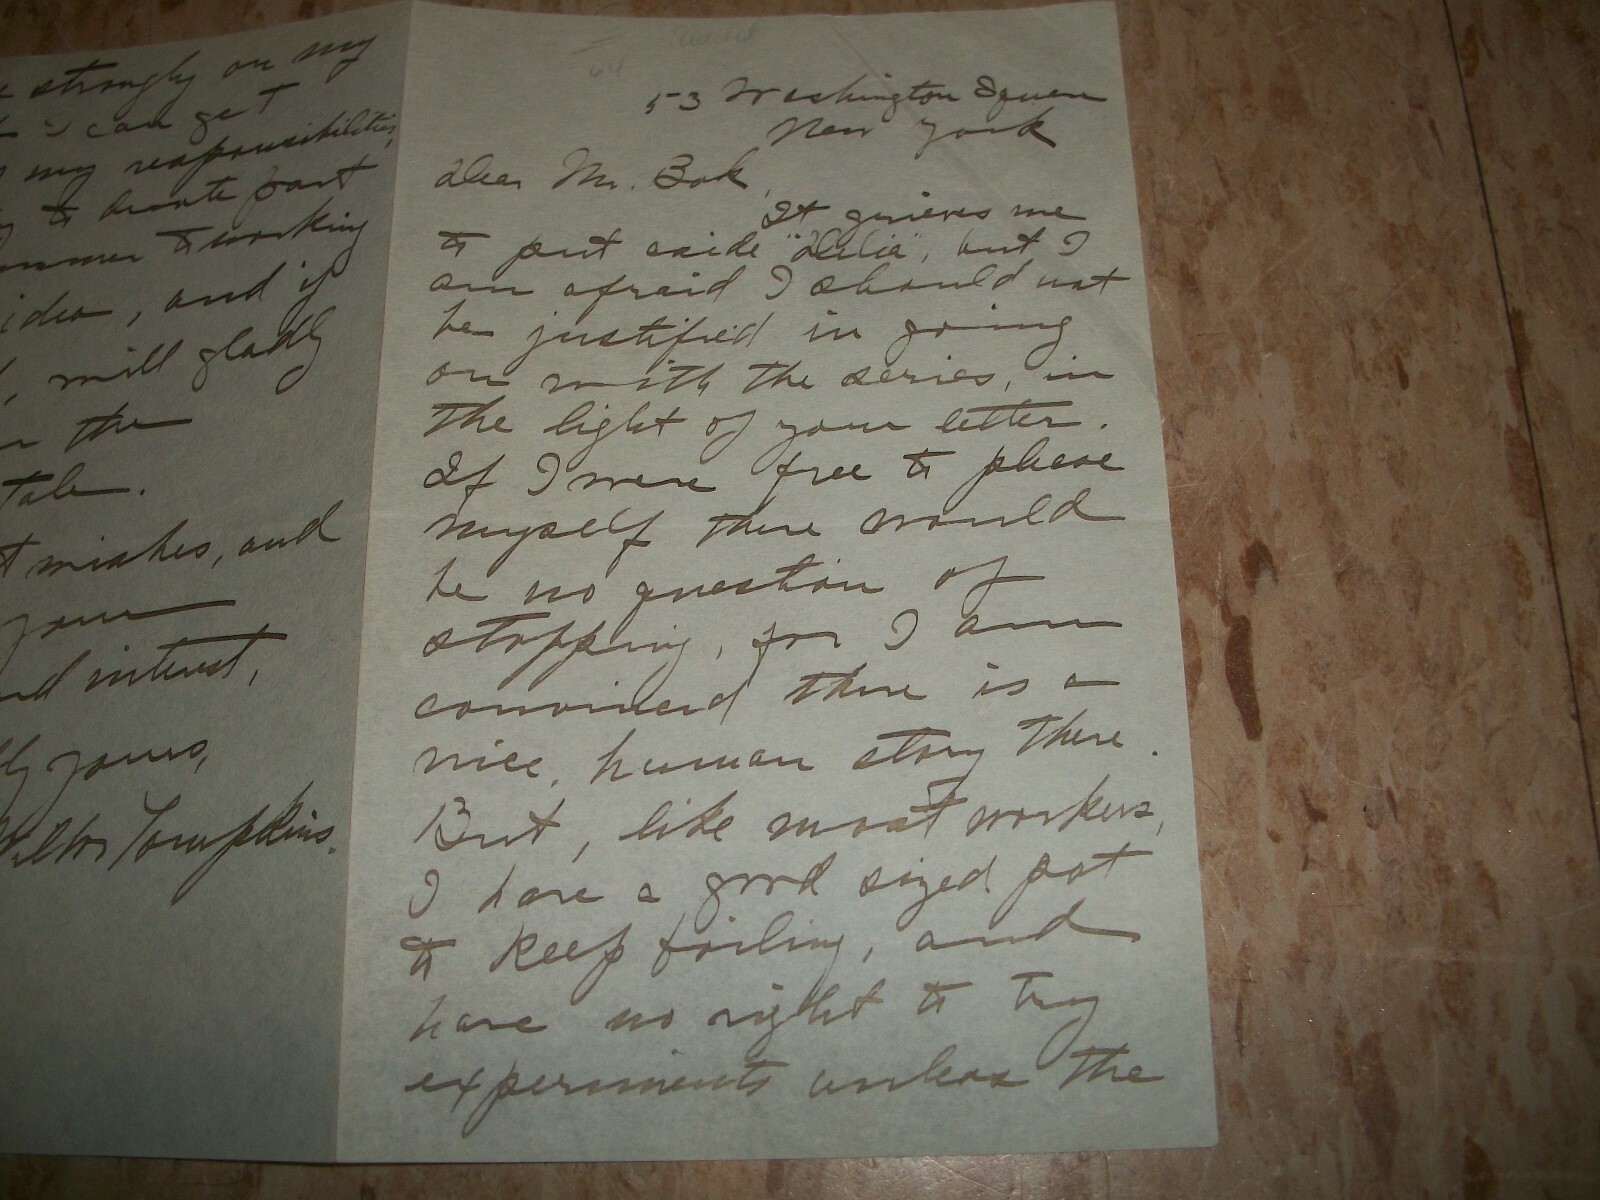 53 Washington Square
New York
Dear Mr. Bok,
It grieves me
to put aside "Delia", but I
am afraid I should not
be justified in going
on with the series, in
the light of your letter.
If I were free to please
myself there would
be no question of
stopping, for I am
convinced there is a
nice, human story there.
But, like most workers,
I have a good sized pot
to keep boiling, and
have no right to try
experiments unless the
strongly on my
I can get
my responsibilities,
to devote part
to working
idea, and if
, will gladly
the
tale.
wishes, and
your
interest,
yours,
Tompkins.